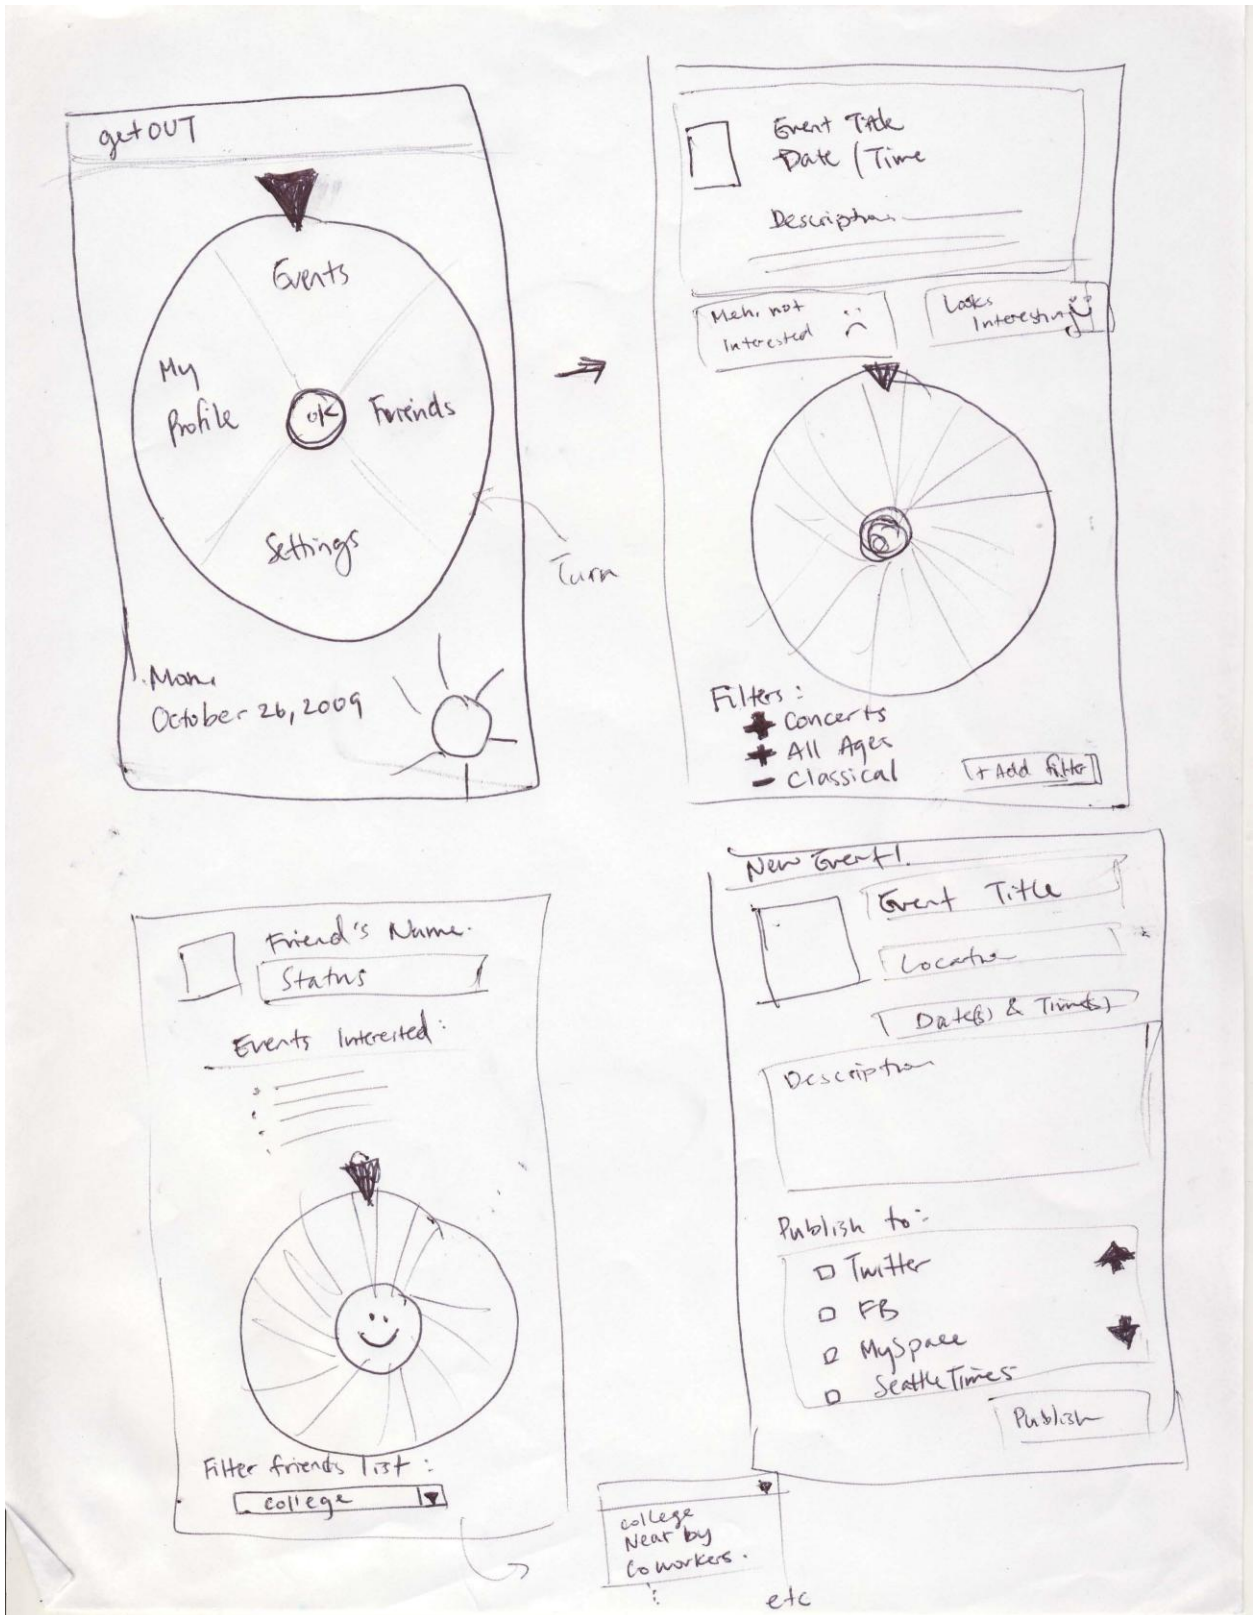 getOUT
Events
My
Profile
OK
Friends
Settings
Turn
Mon.
October 26, 2009
Event Title
Date / Time
Description
Meh, not
Interested
Looks
Interesting
Filters:
+ Concerts
+ All Ages
- Classical
+ Add filter
Friend's Name.
Status
Events Interested:
Filter friends list:
college
college
Near by
Coworkers.
etc
New Event!
Event Title
Location
Date(s) & Time(s)
Description
Publish to:
Twitter
FB
MySpace
Seattle Times
Publish